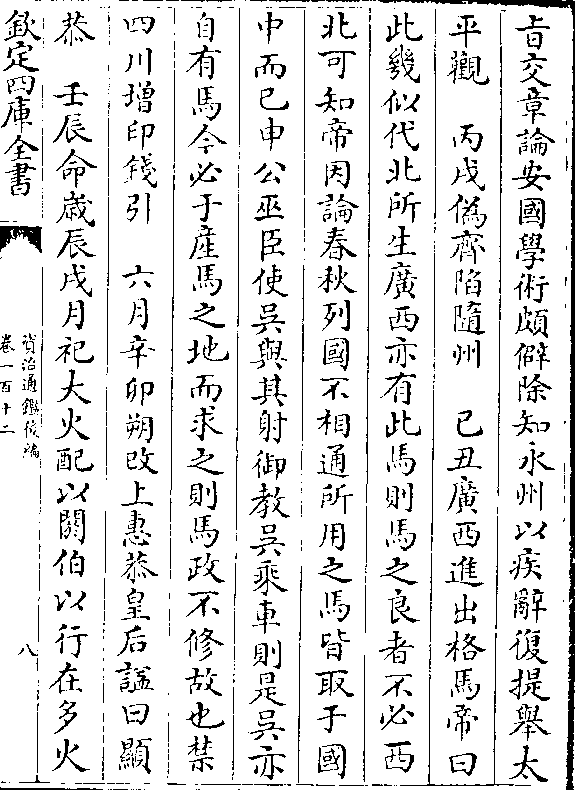 旨交章論安國學術頗僻除知永州以疾辭復提舉太
平觀　丙戌偽齊陷隨州　己丑廣西進出格馬帝曰
此幾似代北所生廣西亦有此馬則馬之良者不必西
北可知帝因論春秋列國不相通所用之馬皆取于國
中而已申公巫臣使吳與其射御教吳乘車則是吳亦
自有馬今必于産馬之地而求之則馬政不修故也禁
四川增印錢引　六月辛卯朔改上惠恭皇后諡曰顯
恭　壬辰命歳辰戌月祀大火配以閼伯以行在多火
欽定四庫全書
資治通鑑後編
卷一百十二
八